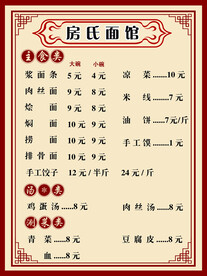 房氏面馆
主食类
大碗 小碗
浆面条 5元 4元 凉菜......10元
肉丝面 10元 9元
烩面 10元 9元 米线......7元
焖面 10元 9元 油饼......7元/斤
捞面 10元 9元
手工馍......1元
排骨面 10元 9元
手工饺子 12元/半斤 24元/斤
汤类
鸡蛋汤......8元 肉丝汤......8元
涮菜类
青菜......8元 豆腐皮......8元
血......8元